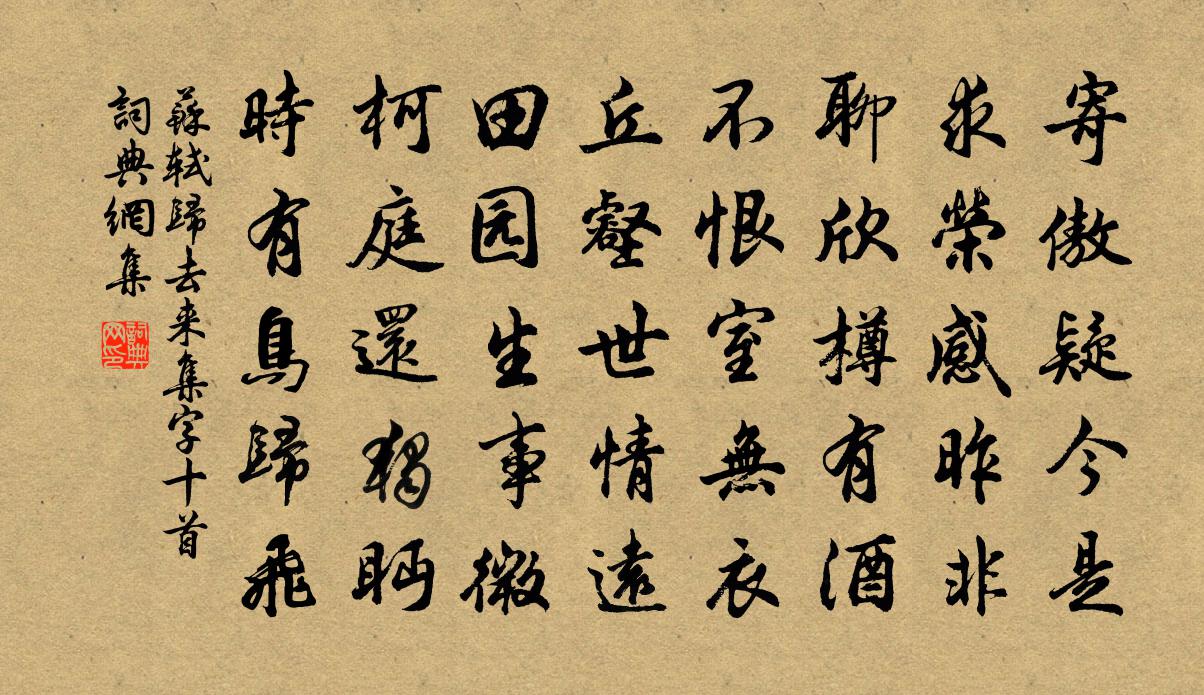 寄傲疑今是
求榮感昨非
聊欣樽有酒
不恨室無衣
丘壑世情遠
田园生事微
柯庭還獨眄
時有鳥歸飛
蘇軾歸去来集字十首
詞典網集
詞典网印